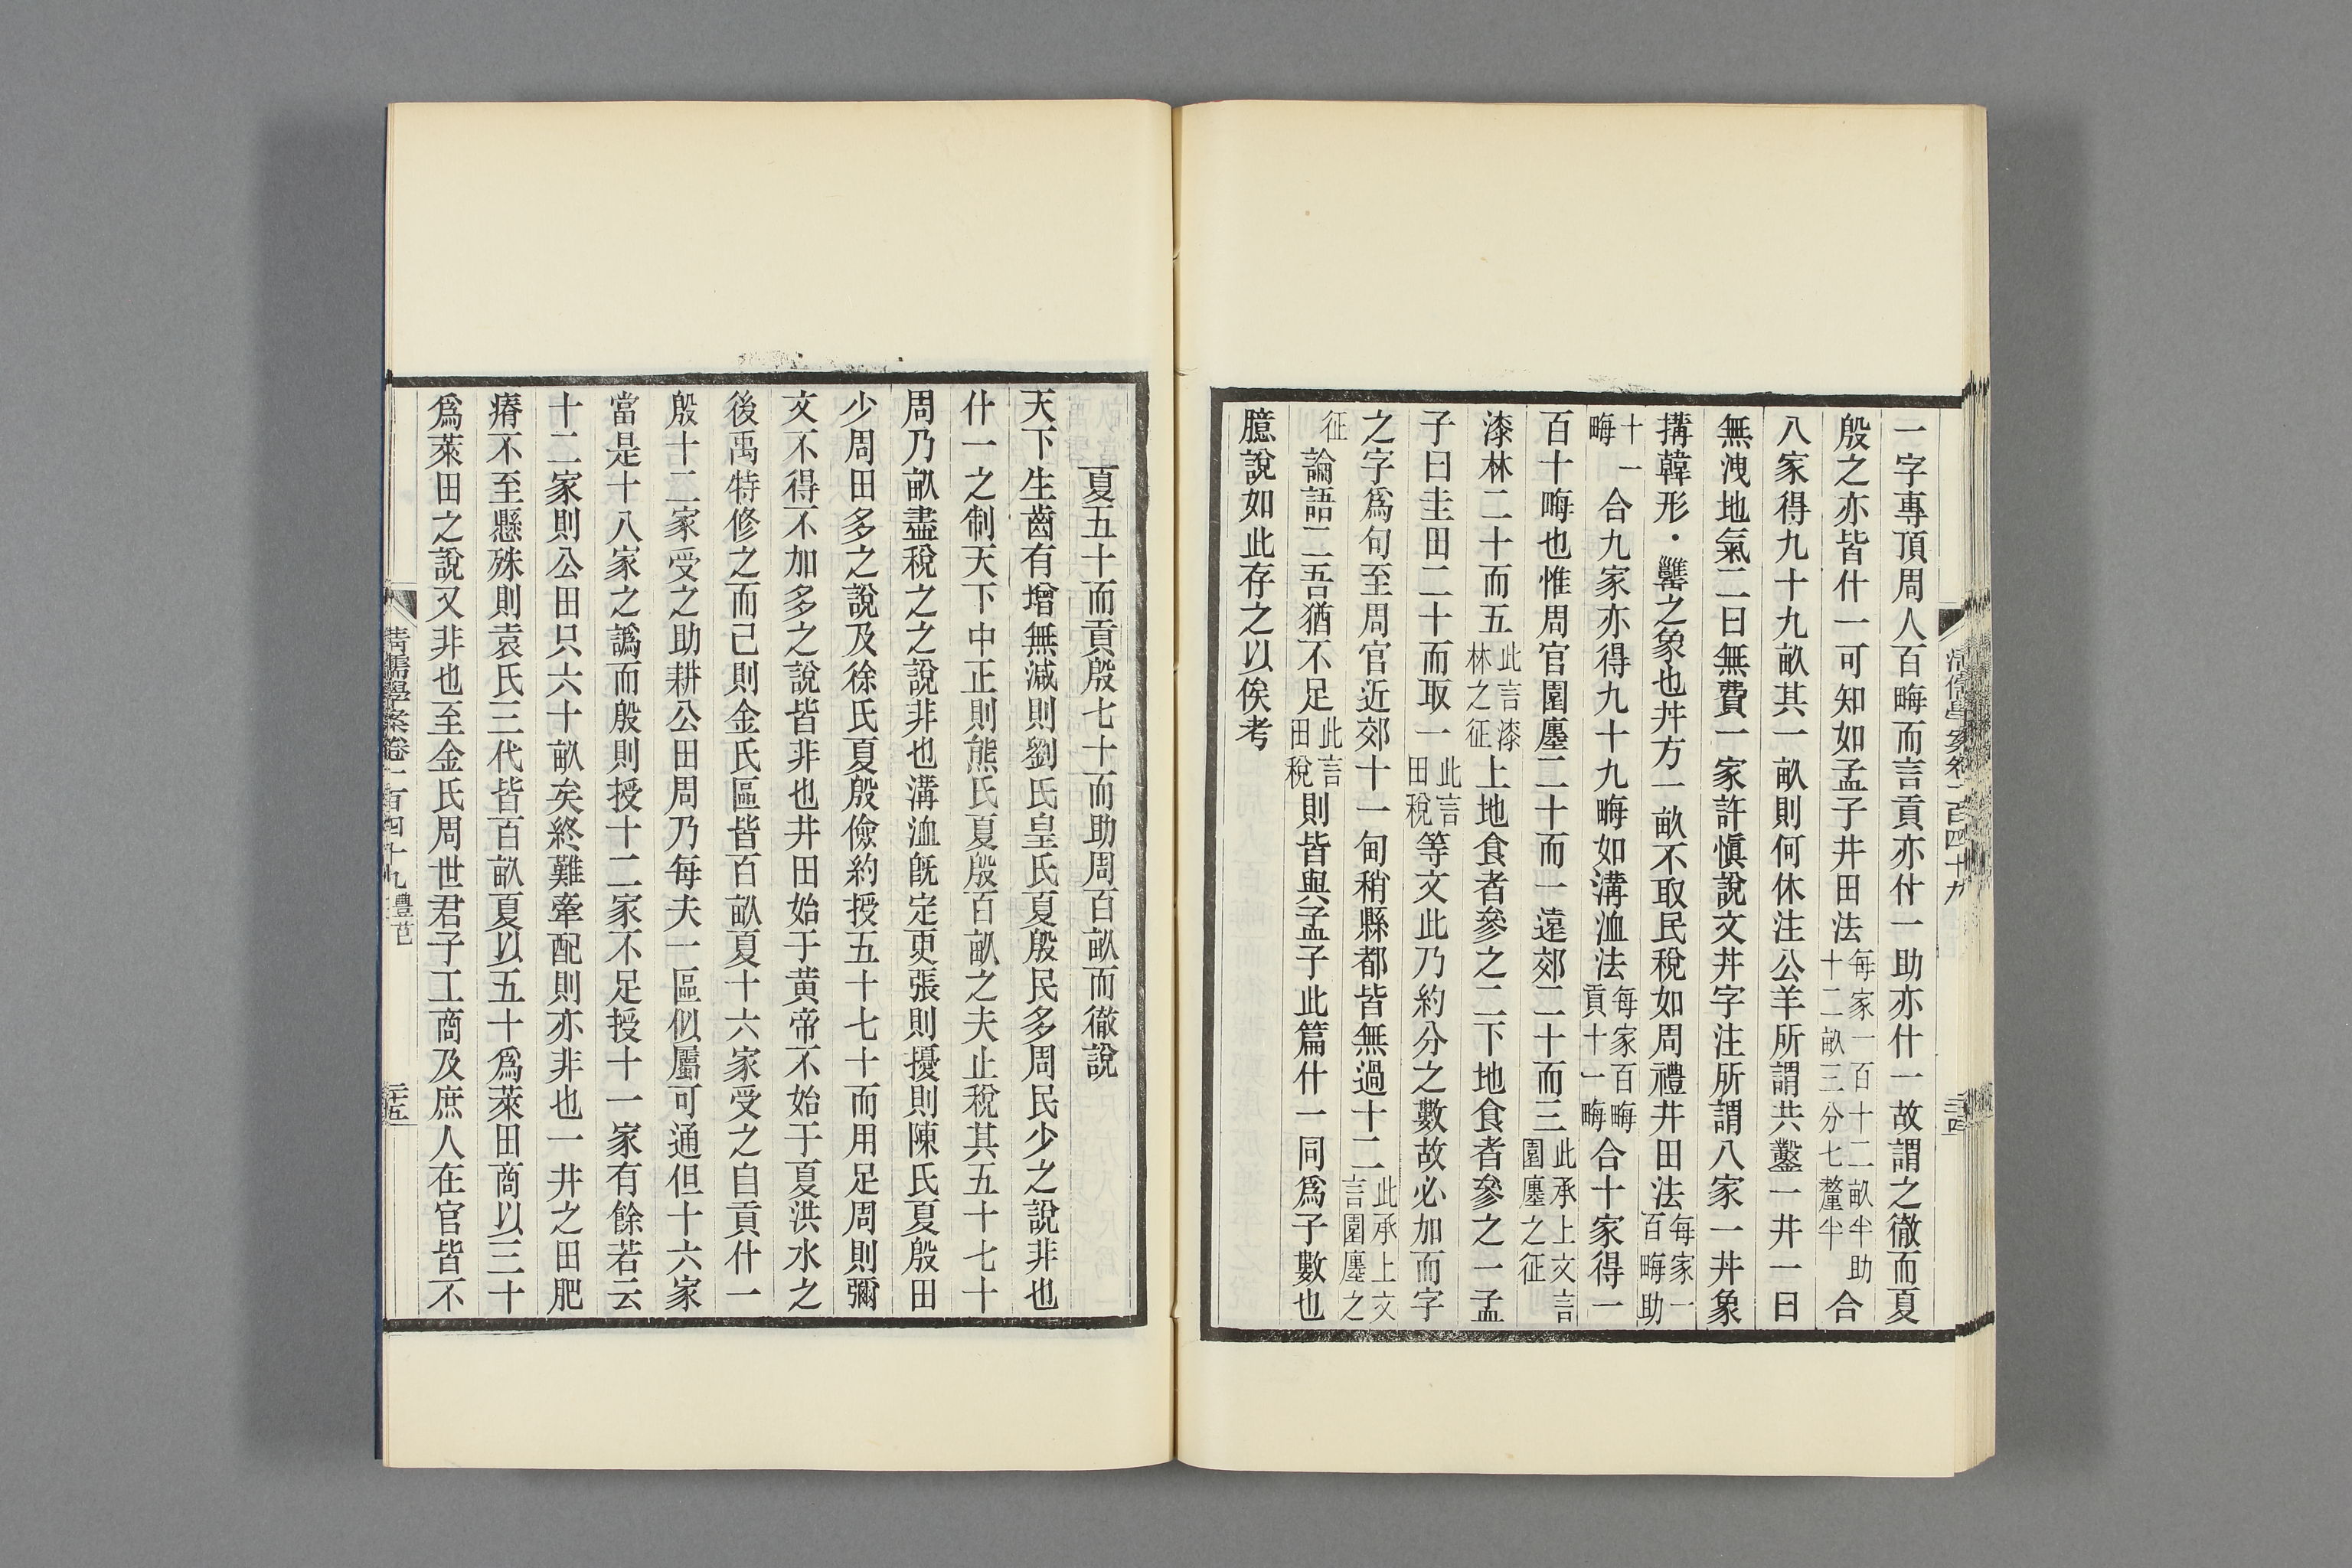 一字專頂周人百畮而言貢亦什一助亦什一故謂之徹而夏
殷之亦皆什一可知如孟子井田法每家一百十二畝半助十二畝三分七釐半合
八家得九十九畝其一畝則何休注公羊所謂共鑿一井一曰
無洩地氣二曰無費一家許愼說文丼字注所謂八家一丼象
構韓形・𦉥之象也丼方一畝不取民稅如周禮井田法每家一百畮助
十一畮合九家亦得九十九畮如溝洫法每家百畮貢十一畮合十家得一
百十畮也惟周官園廛二十而一遠郊二十而三此承上文言園廛之征
漆林二十而五此言漆林之征上地食者參之二下地食者參之一孟
子曰圭田二十而取一此言田稅等文此乃約分之數故必加而字
之字爲句至周官近郊十一甸稍縣都皆無過十二此承上文言園廛之
征論語二吾猶不足此言田稅則皆與孟子此篇什一同爲子數也
臆說如此存之以俟考
清儒學案卷一百四十九
三十四
夏五十而貢殷七十而助周百畝而徹說
天下生齒有增無減則劉氏皇氏夏殷民多周民少之說非也
什一之制天下中正則熊氏夏殷百畝之夫止稅其五十七十
周乃畝盡稅之之說非也溝洫旣定更張則擾則陳氏夏殷田
少周田多之說及徐氏夏殷儉約授五十七十而用足周則彌
文不得不加多之說皆非也井田始于黃帝不始于夏洪水之
後禹特修之而已則金氏區皆百畝夏十六家受之自貢什一
殷十二家受之助耕公田周乃每夫一區似屬可通但十六家
當是十八家之譌而殷則授十二家不足授十一家有餘若云
十二家則公田只六十畝矣終難牽配則亦非也一井之田肥
瘠不至懸殊則袁氏三代皆百畝夏以五十爲萊田商以三十
爲萊田之說又非也至金氏周世君子工商及庶人在官皆不
清儒學案卷一百四十九豐芑
三十五